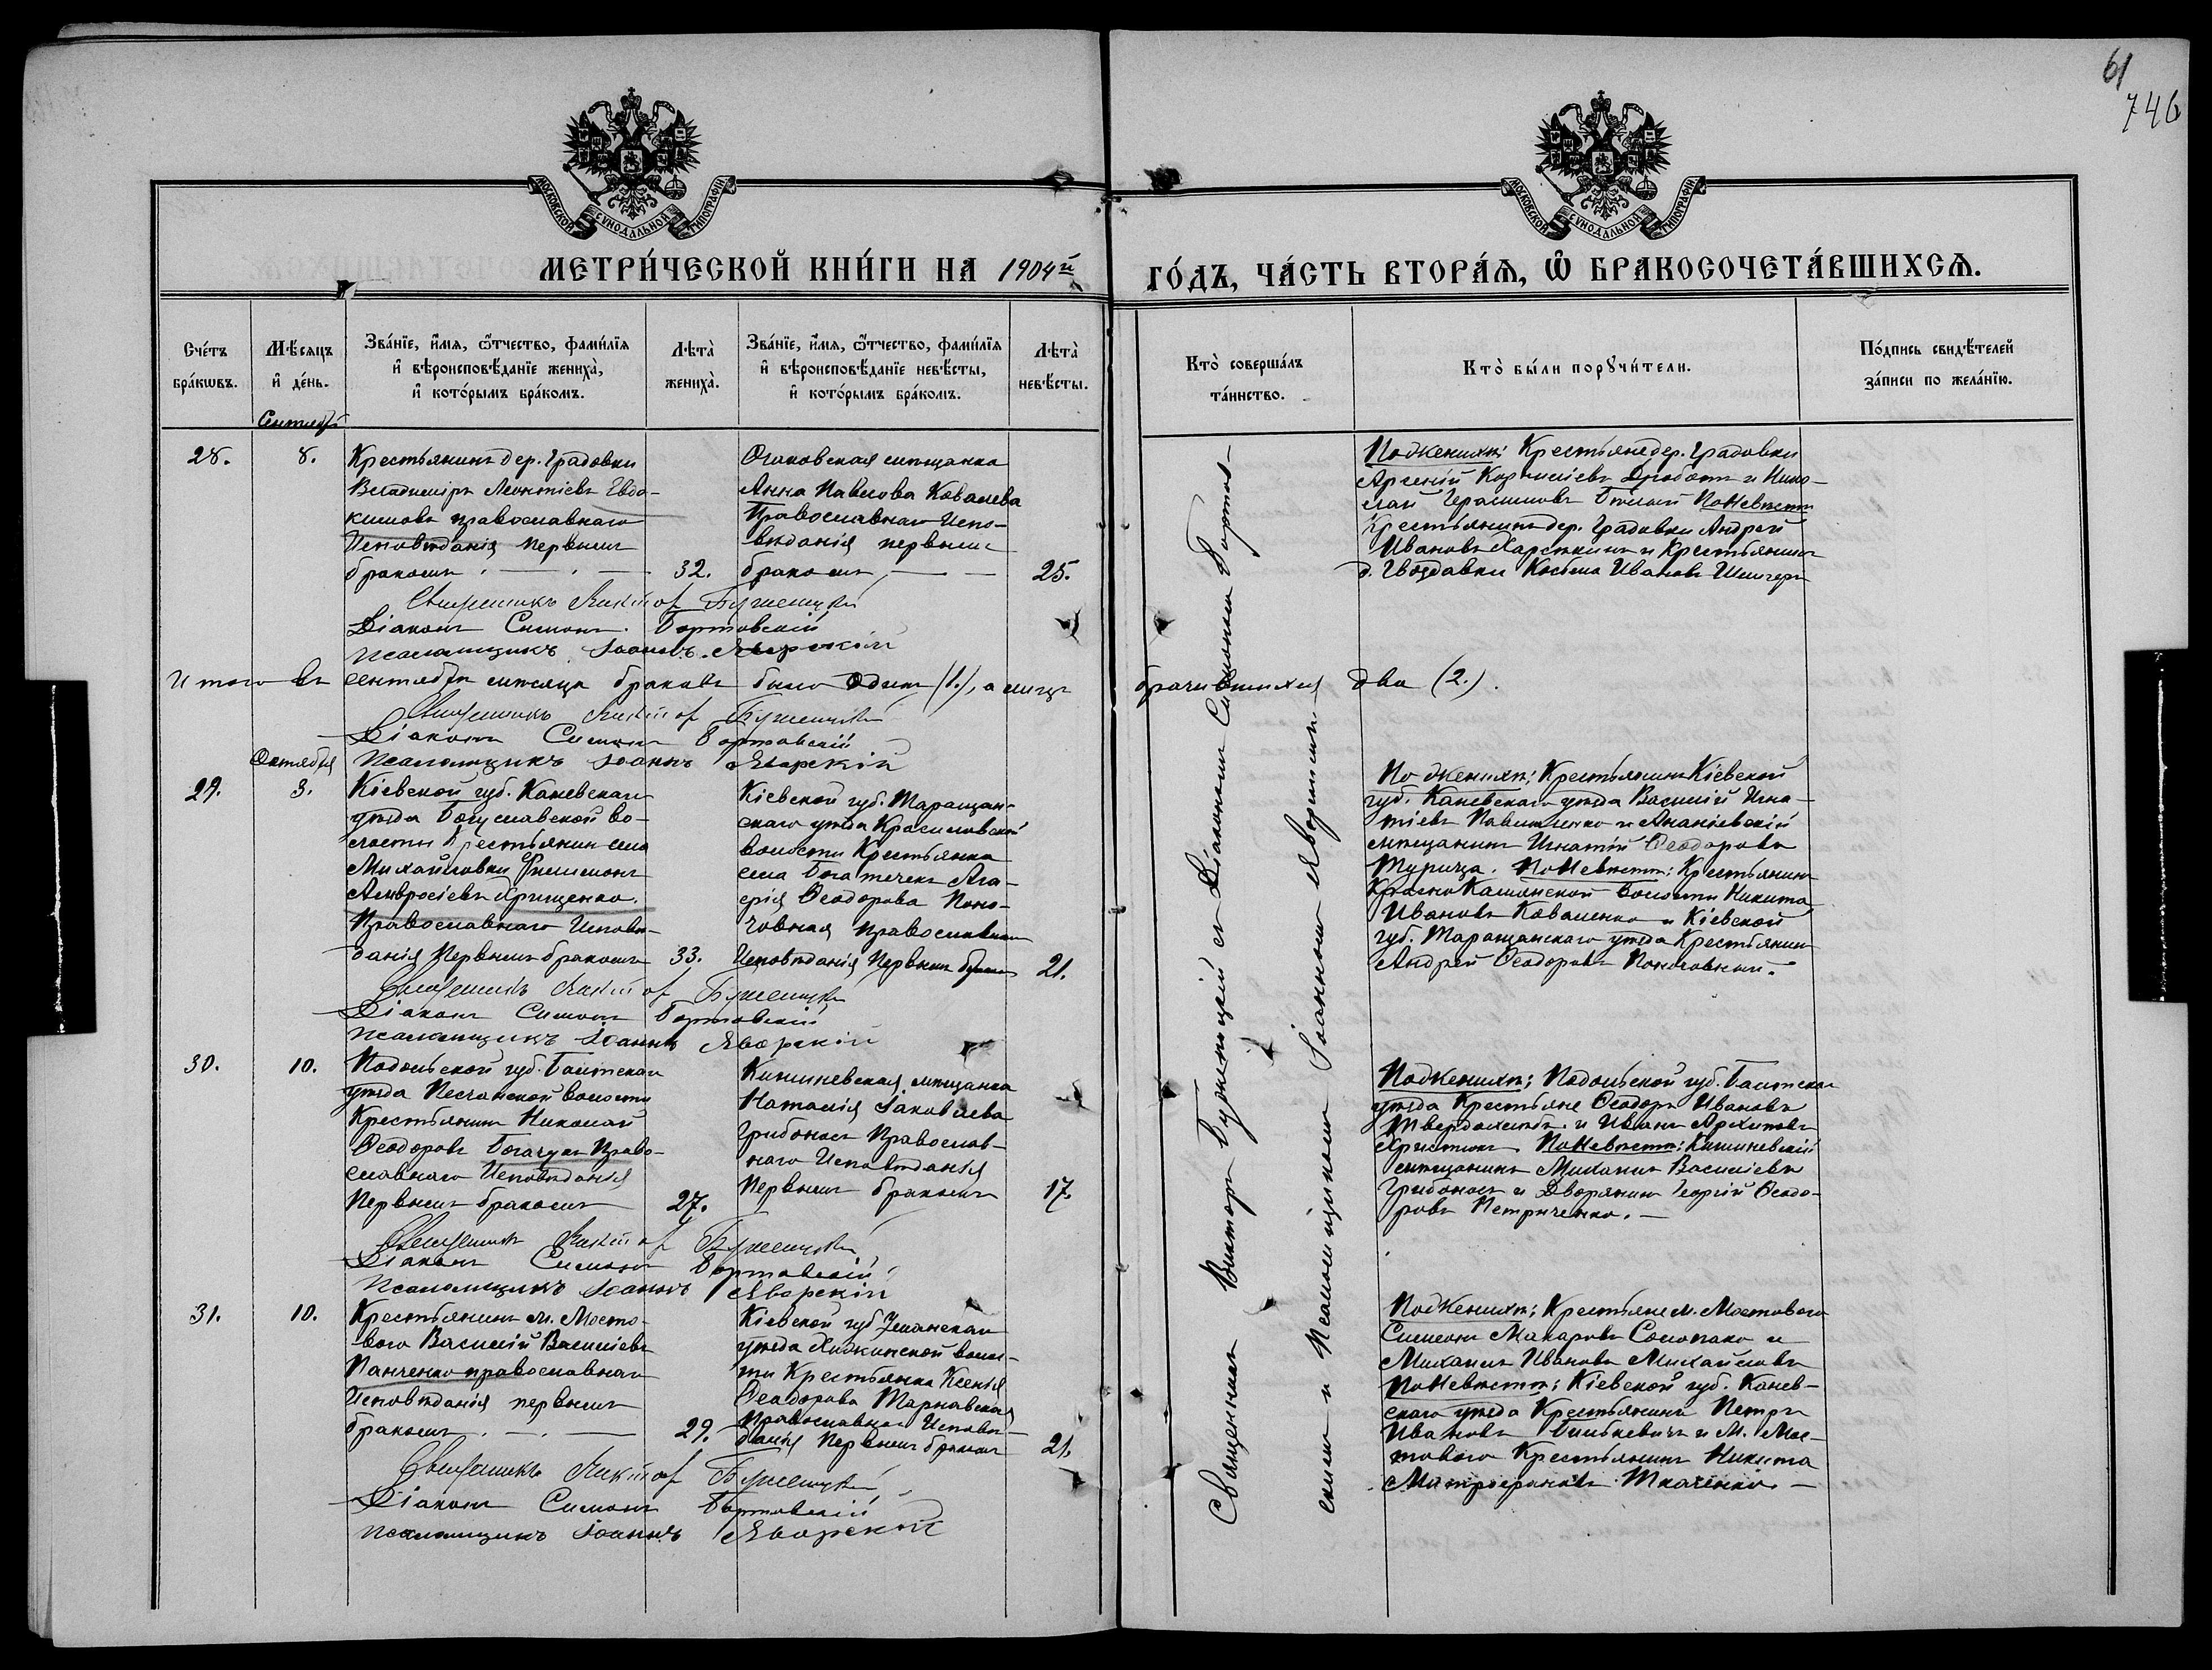 61
746
МОСКОВСКОЙ СУНОДАЛЬНОЙ ТИПОГРАФІИ
МОСКОВСКОЙ СУНОДАЛЬНОЙ ТИПОГРАФІИ
МЕТРИ́ЧЕСКОЙ КНИ́ГИ НА 1904й ГО́ДЪ, ЧА́СТЬ ВТОРА́Ѧ, Ѽ БРАКОСОЧЕТА́ВШИХСѦ.
Сче́тъ
бра́кѡвъ.
Мѣ́сяцъ
и҆ де́нь.
Зва́нїе, и҆́мя, ѻ҆́тчество, фами́лїя
и҆ вѣроисповѣ́данїе жениха̀,
и҆ кото́рымъ бра́комъ.
Лѣта̀
жениха̀.
Зва́нїе, и҆́мя, ѻ҆́тчество, фами́лїя
и҆ вѣроисповѣ́данїе невѣ́сты,
и҆ кото́рымъ бра́комъ.
Лѣта̀
невѣ́сты.
Кто̀ соверша́лъ
та́инство.
Кто̀ бы́ли порꙋчи́тели.
По́дпись свидѣ́телей
за́писи по жела́нїю.
Сентябрь
28.
8.
Крестьянинъ дер. Градовки
Владиміръ Леонтіевъ Евдо-
кимовъ православнаго
Исповѣданія первымъ
бракомъ
32.
Очаковская мѣщанка
Анна Павлова Ковалева
Православнаго Испо-
вѣданія первымъ
бракомъ,
25.
По женихѣ: Крестьяне дер. Градовки
Арсеній Корниліевъ Дроботъ и Нико-
лай Герасимовъ Бѣлый По Невѣстѣ
Крестьянинъ дер. Градовки Андрей
Ивановъ и Крестьянинъ
д. Гвоздавки Косьма Ивановъ
Священникъ
Діаконъ Симонъ Бортовскій
Псаломщикъ Іоаннъ Яворскій
Итого въ Сентябрѣ мѣсяцѣ браковъ было Одинъ (1.), а лицъ брачившихся два (2.).
Священникъ
Діаконъ Симонъ Бортовскій
Псаломщикъ Іоаннъ Яворскій
Октября
29.
3.
Кіевской губ. Каневскаго
уѣзда Богуславской Во-
лости Крестьянин села
Михайловки Филимонъ
Амвросіевъ Хрищенко.
Православнаго Исповѣ-
данія Первымъ бракомъ
33.
Кіевской губ. Таращан-
скаго уѣзда Красиловской
волости Крестьянка
села Богатечек Ага-
фія Ѳеодорова Поно-
човная православнаго
Исповѣданія Первымъ браком
21.
По женихѣ; Крестьянинъ Кіевской
губ. Каневскаго уѣзда Василій Игна-
тіевъ Павленко и Ананіевскій
мѣщанинъ Игнатій Ѳеодоровъ
Турица. По Невѣстѣ: Крестьянинъ
Волости Никита
Ивановъ Коваленко и Кіевской
губ. Таращанскаго уѣзда Крестьянин
Андрей Ѳеодоровъ Поночовный.
Священникъ
Діаконъ Симонъ Бортовскій
Псаломщикъ Іоаннъ Яворскій
30.
10.
Подольской губ. Балтскаго
уѣзда Песчанской Волости
Крестьянинъ Николай
Ѳеодоровъ Богачук Право-
славнаго Исповѣданія
Первымъ бракомъ
27.
Кишиневская мѣщанка
Наталія Іаковлева
Грибонос Православ-
наго Исповѣданія
Первымъ бракомъ
17.
По Женихѣ; Подольской губ. Балтскаго
уѣзда Крестьяне Ѳеодоръ Ивановъ
Твердохлѣбъ и Иванъ Архиповъ
По Невѣстѣ: Кишиневскій
мѣщанинъ Михаилъ Василіевъ
Грибонос и Дворянинъ Георгій Ѳеодо-
ровъ Петриченко.
Священникъ
Діаконъ Симонъ Бортовскій
Псаломщикъ Іоаннъ Яворскій
31.
10.
Крестьянинъ м. Мосто-
вого Василій Василіевъ
Панченко православнаго
Исповѣданія первымъ
бракомъ
29.
Кіевской губ Уманскаго
уѣзда волос-
ти Крестьянка Ксенія
Ѳеодорова Тарнавская
Православнаго Исповѣ-
данія Первымъ браком
21.
По Женихѣ; Крестьяне м. Мостового
Симеонъ Макаровъ и
Михаилъ Ивановъ Михайловъ
По Невѣстѣ; Кіевской губ. Канев-
скаго уѣзда Крестьянинъ Петръ
Ивановъ и М. Мос-
тового Крестьянинъ Никита
Митрофановъ Ткаченко.
Священникъ
Діаконъ Симонъ Бортовскій
Псаломщикъ Іоаннъ Яворскій
Священникъ Викторъ съ Діакономъ Симономъ Бортов-
скимъ и Псаломщикомъ Іоанномъ Яворскимъ